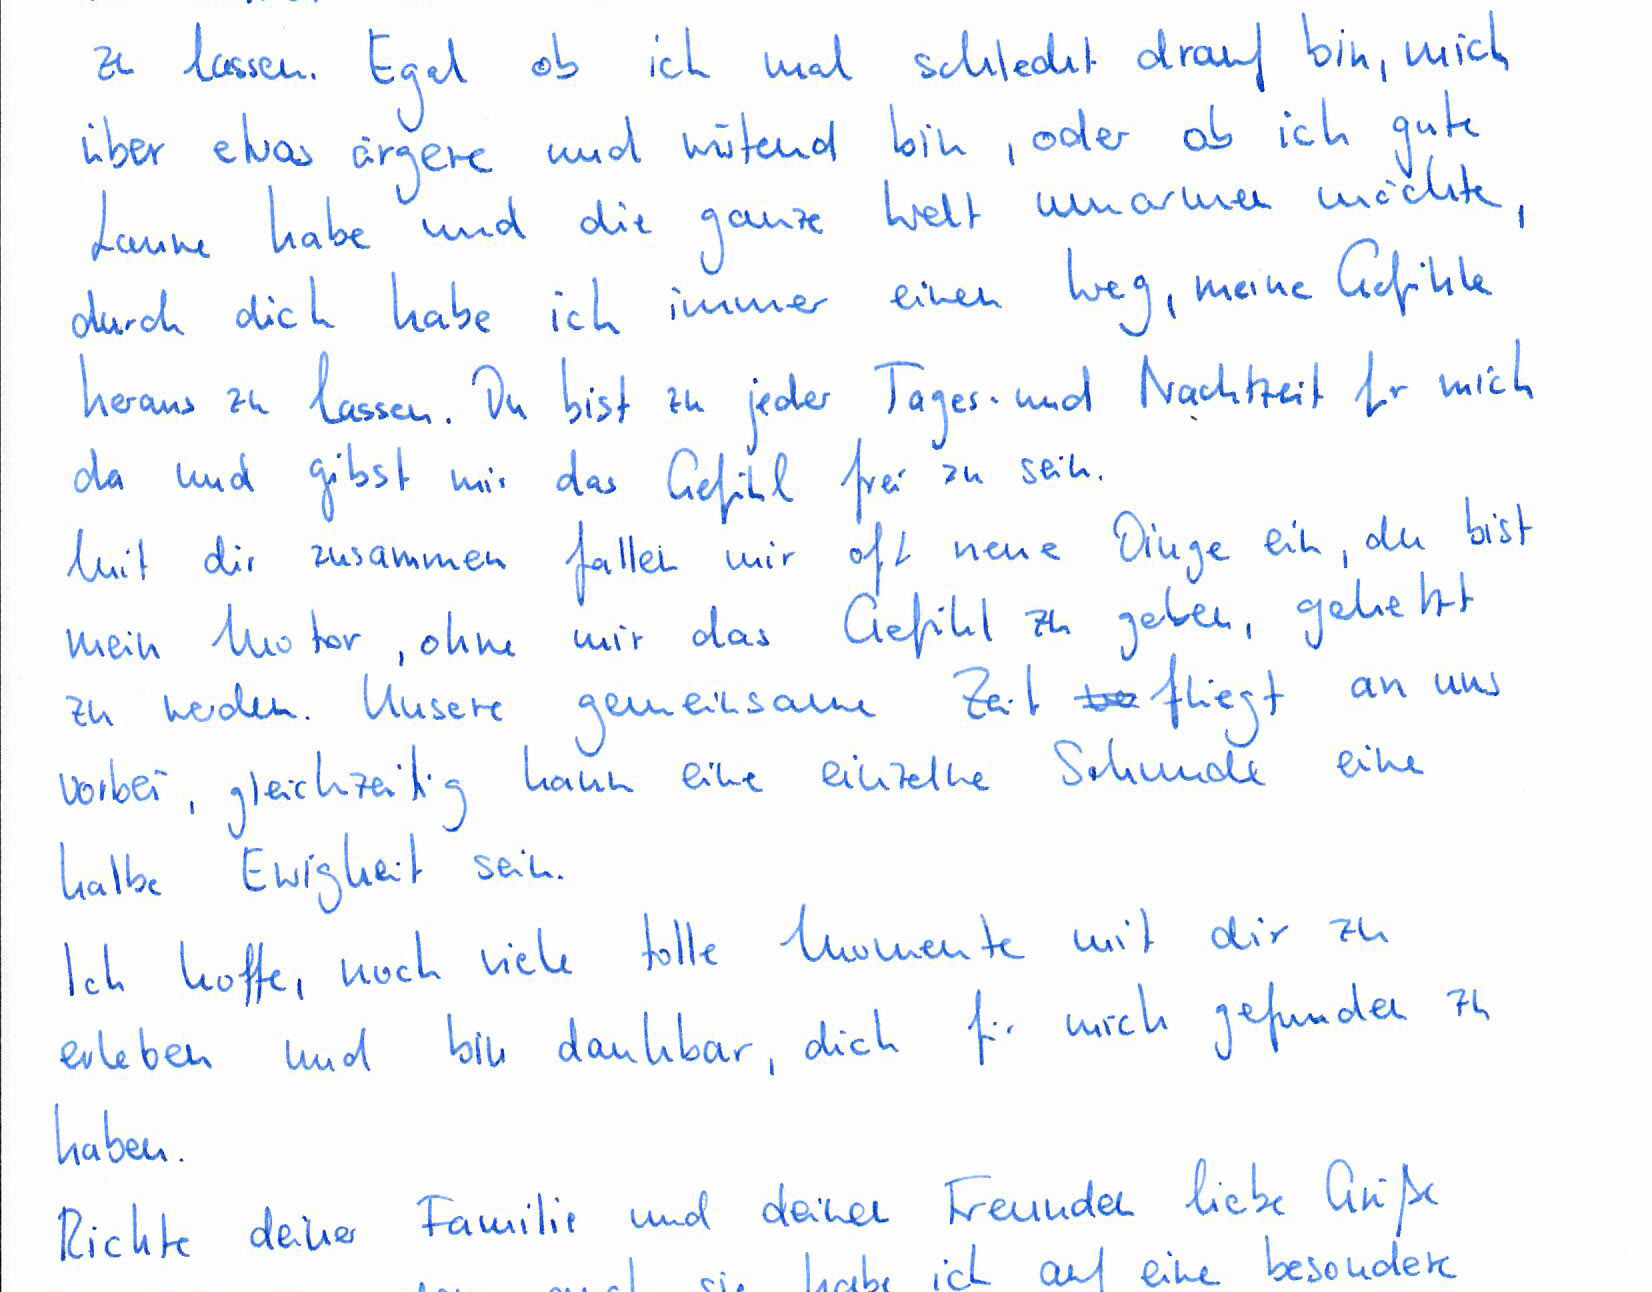 zu lassen. Egal ob ich mal schlecht drauf bin, mich
über etwas ärgere und wütend bin, oder ob ich gute
Laune habe und die ganze Welt umarmen möchte,
durch dich habe ich immer einen Weg, meine Gefühle
heraus zu lassen. Du bist zu jeder Tages- und Nachtzeit für mich
da und gibst mir das Gefühl frei zu sein.
Mit dir zusammen fallen mir oft neue Dinge ein, du bist
mein Motor, ohne mir das Gefühl zu geben, gehetzt
zu werden. Unsere gemeinsame Zeit fliegt an uns
vorbei, gleichzeitig kann eine einzelne Sekunde eine
halbe Ewigkeit sein.
Ich hoffe, noch viele tolle Momente mit dir zu
erleben und bin dankbar, dich für mich gefunden zu
haben.
Richte deiner Familie und deinen Freunden liebe Grüße
denn auch sie habe ich auf eine besondere